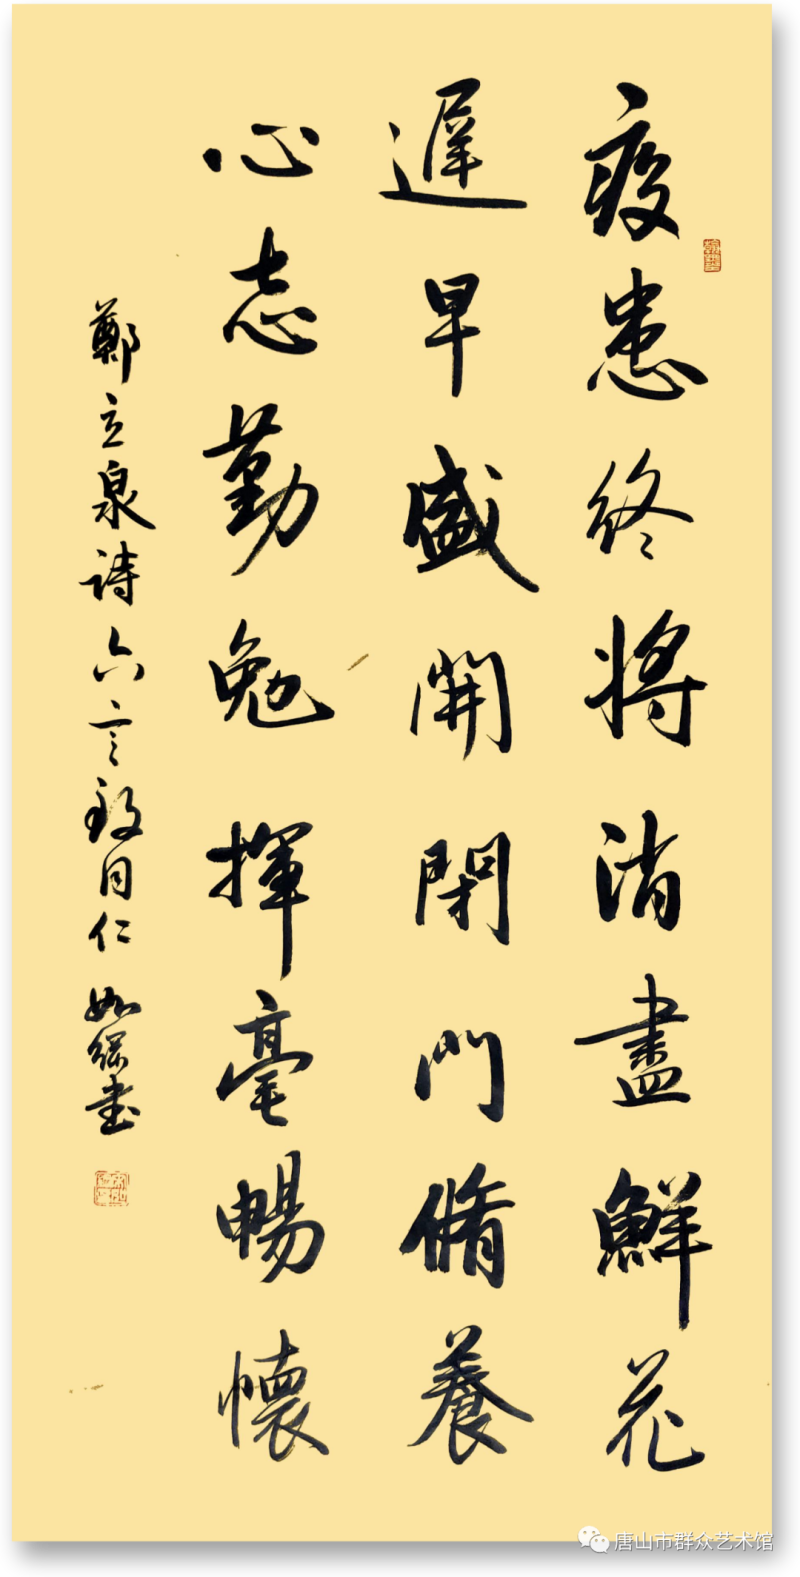 疫患终将消盡鮮花
遲早盛開閉門脩養
心志勤勉揮毫暢懷
鄭立泉诗六言致同仁 如綵书
唐山市群众艺术馆